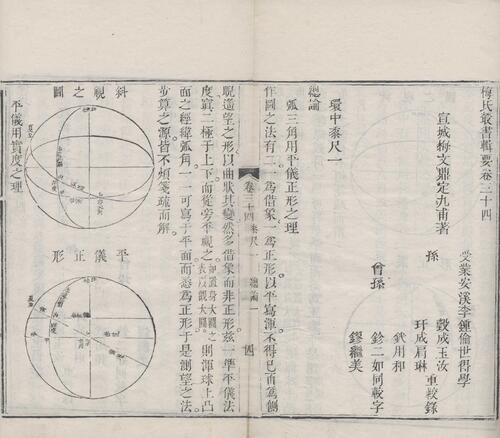 梅氏叢書輯要卷三十四
宣城梅文鼎定九甫著
受業安溪李鍾倫世得學
孫
瑴成玉汝
玕成肩琳
重較錄
曾孫
鈖用和
鈖二如同較字
鏐繼美
環中黍尺一
總論
弧三角用平儀正形之理
作圖之法有二一爲借象一爲正形以平寫渾不得已而爲側
卷三十四
黍尺一
總論一
四
睨遙望之形以曲狀其變然多借象而非正形茲一準平儀法
度寘二極于上下而從旁平視之
如置身大圜
之表以觀大圜
則渾球上凸
面之經緯弧角一一可寫于平面而悉爲正形于是測望之法
步算之源皆不煩箋疏而解
斜視之圖
平儀正形
平儀用實度之理